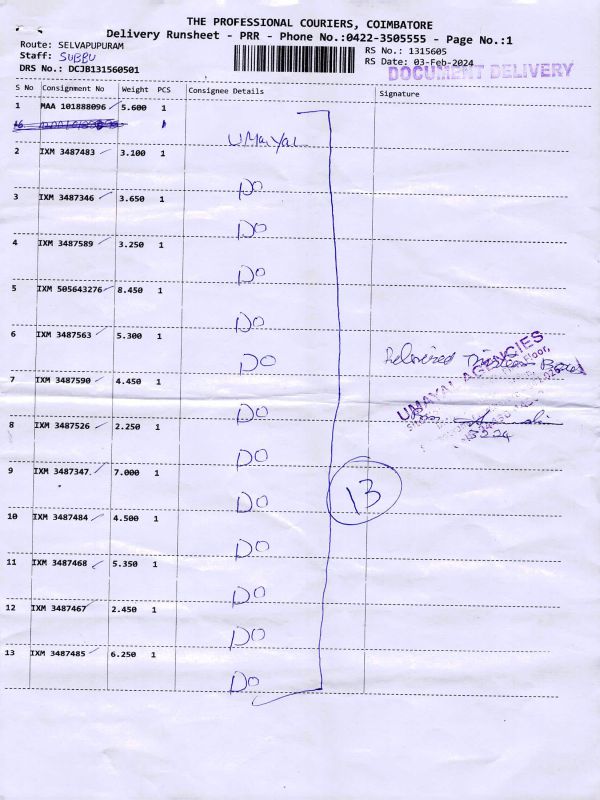 THE PROFESSIONAL COURIERS, COIMBATORE
Delivery Runsheet - PRR - Phone No.:0422-3505555 - Page No.:1
Route: SELVAPUPURAM
RS No.: 1315605
Staff: SUBBU
RS Date: 03-Feb-2024
DRS No.: DCJB131560501
DOCUMENT DELIVERY
S No Consignment No Weight PCS Consignee Details Signature
1 MAA 101888096 5.600 1
UMaiyal
2 IXM 3487483 3.100 1
Do
3 IXM 3487346 3.650 1
Do
4 IXM 3487589 3.250 1
Do
5 IXM 505643276 8.450 1
Do
6 IXM 3487563 5.300 1
Do
Delivered
7 IXM 3487590 4.450 1
UMAYAL AGENCIES
Do
8 IXM 3487526 2.250 1
Do
9 IXM 3487347 7.000 1
Do
13
10 IXM 3487484 4.500 1
Do
11 IXM 3487468 5.350 1
Do
12 IXM 3487467 2.450 1
Do
13 IXM 3487485 6.250 1
Do